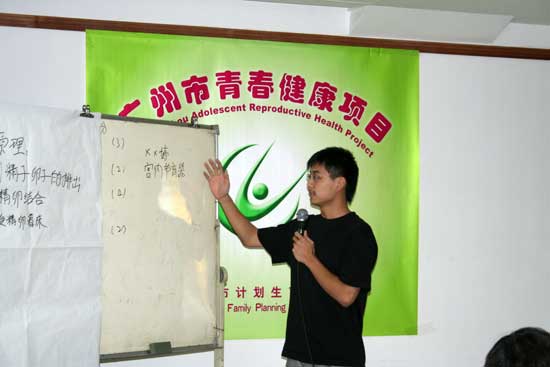 广州市青春健康项目
ou Adolescent Reproductive Health Project
原理
精子卵子的排出
精卵结合
受精卵着床
(3)
xx栓
(2)
宫内节育器
(2)
市计划生
Family Planning